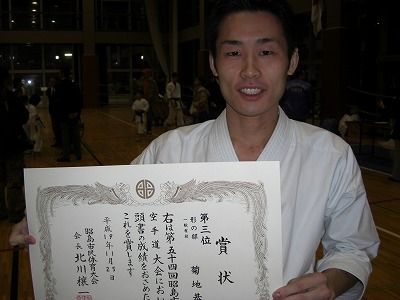 賞状
第三位
形の部
一般有段
菊地
右は第五十四回昭島
空手道大会におい
頭書の成績をおさめた
これを賞します
平成19年11月25日
昭島市民体育大会
会長 北川穣